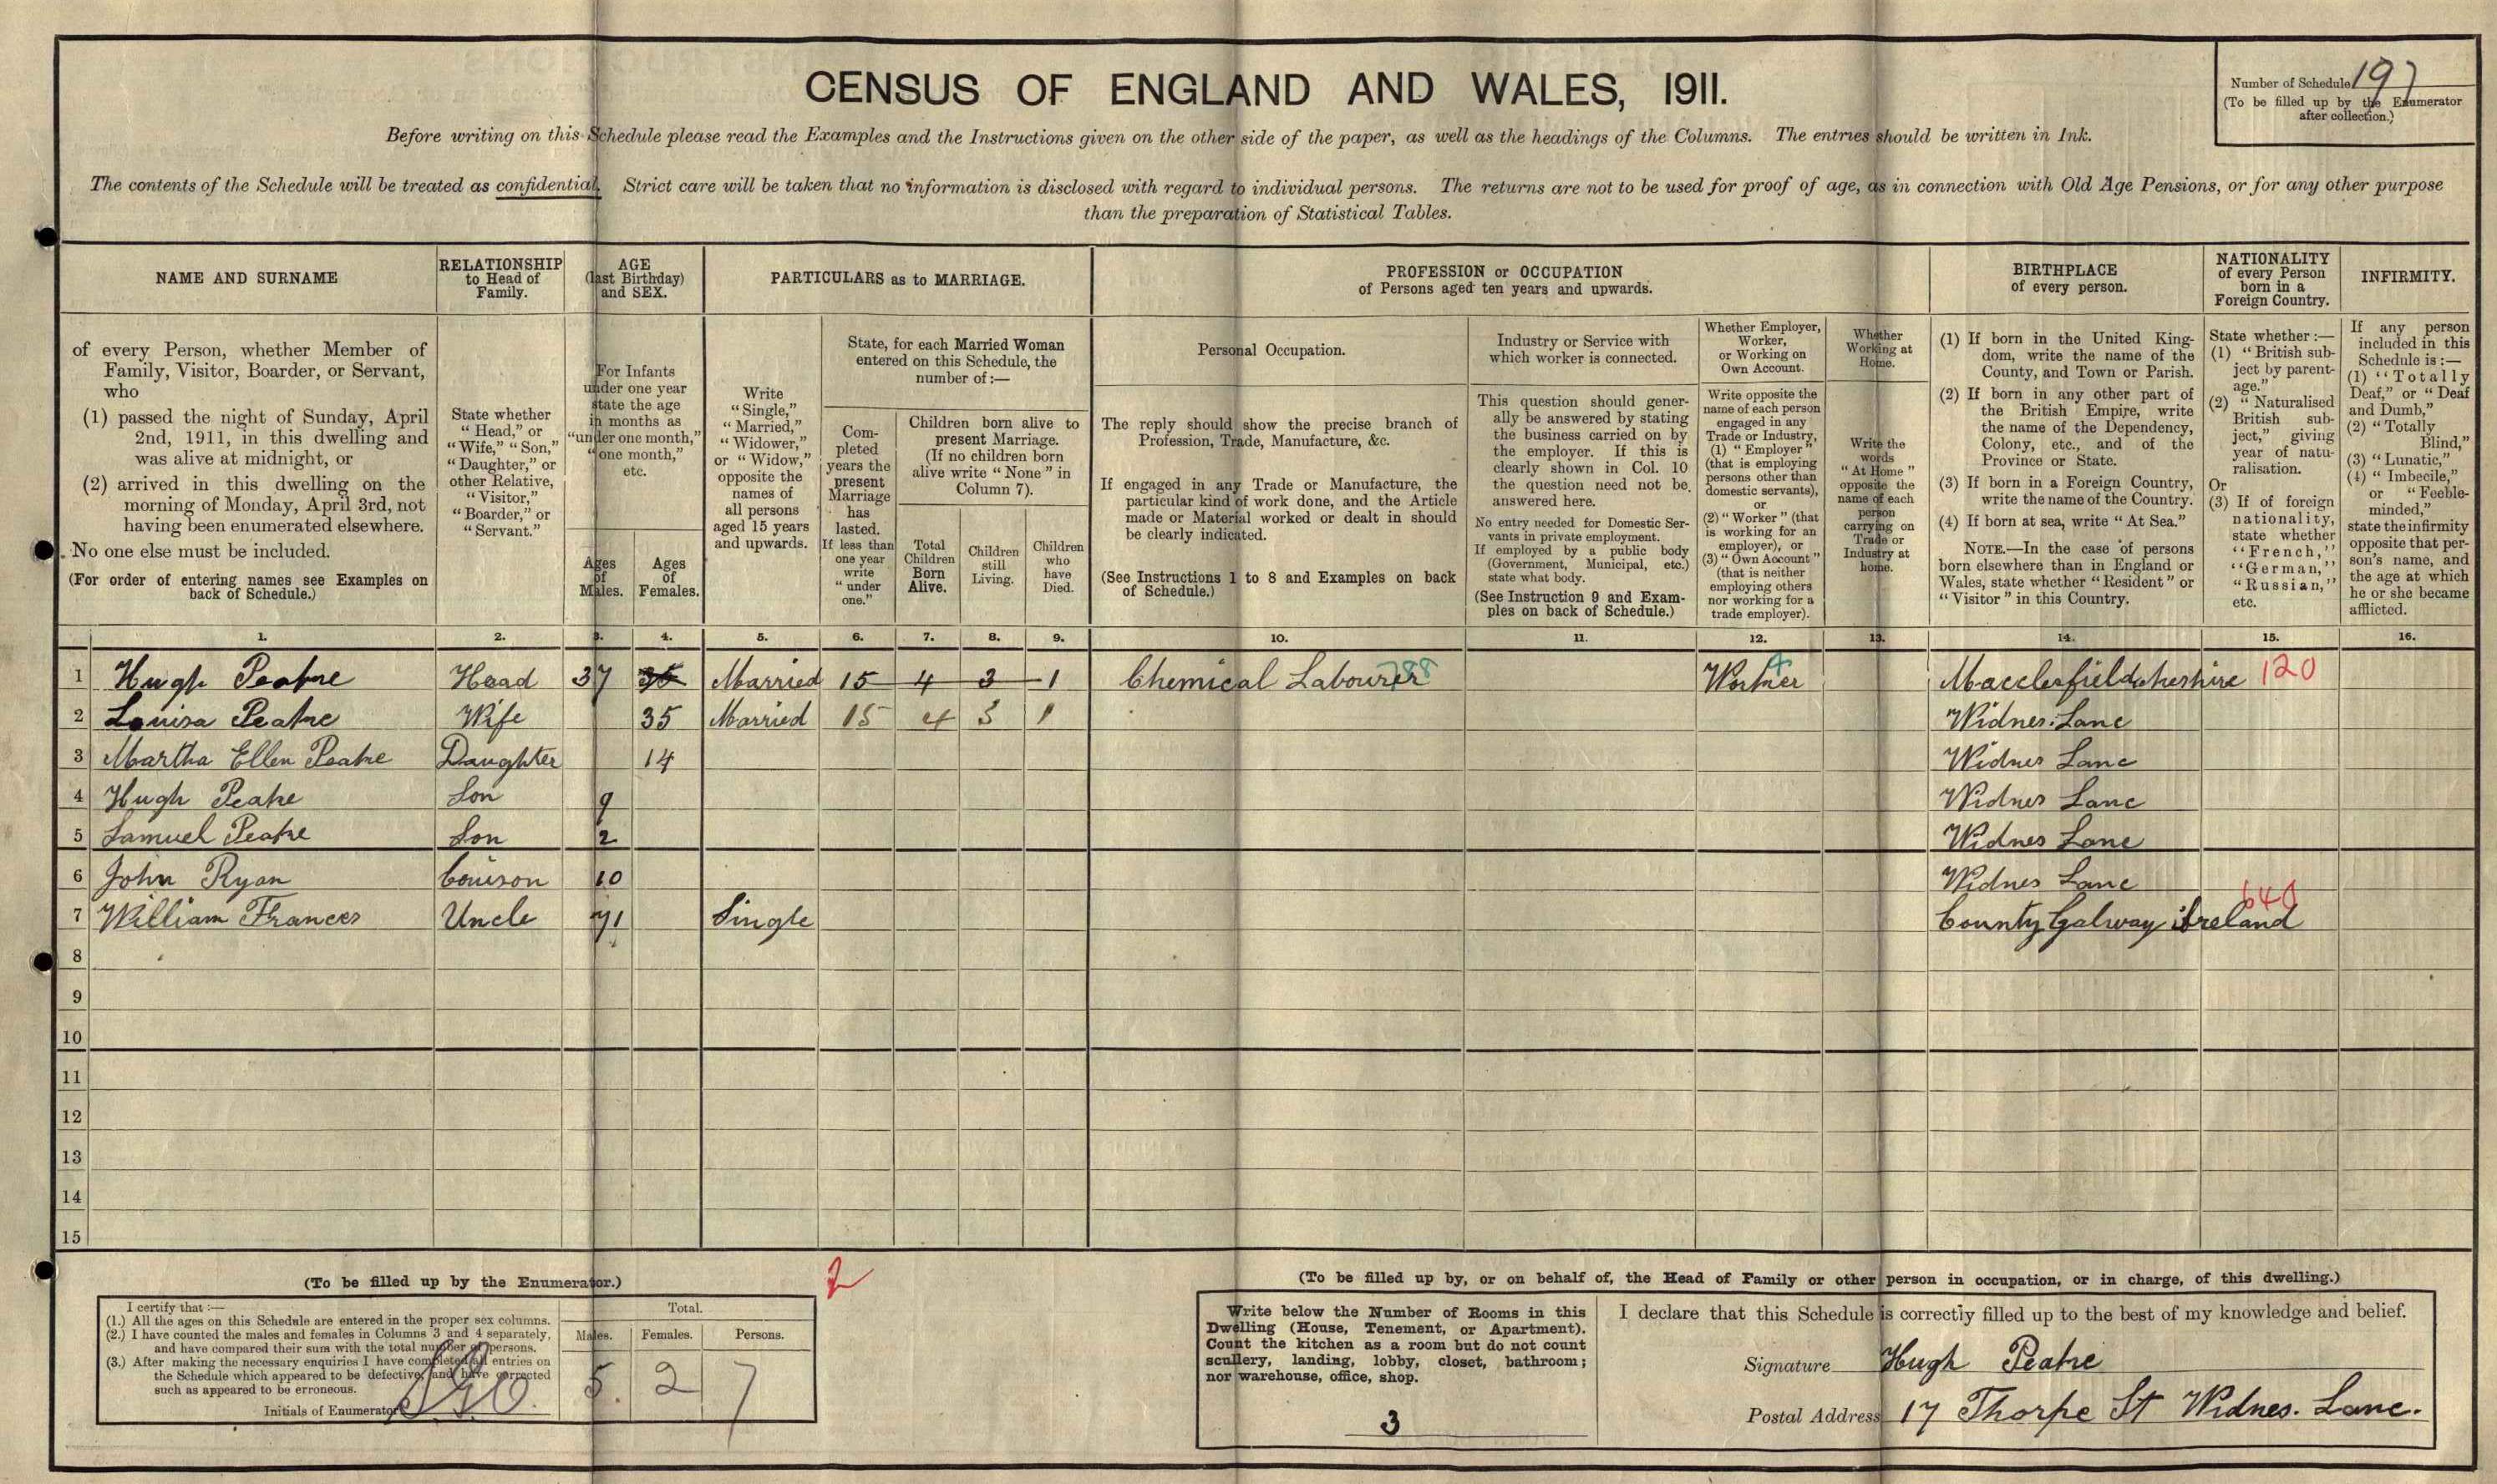 CENSUS OF ENGLAND AND WALES, 1911.
Number of Schedule 197
(To be filled up by the Enumerator
after collection.)
Before writing on this Schedule please read the Examples and the Instructions given on the other side of the paper, as well as the headings of the Columns. The entries should be written in Ink.
The contents of the Schedule will be treated as confidential. Strict care will be taken that no information is disclosed with regard to individual persons. The returns are not to be used for proof of age, as in connection with Old Age Pensions, or for any other purpose
than the preparation of Statistical Tables.
NAME AND SURNAME
of every Person, whether Member of
Family, Visitor, Boarder, or Servant,
who
(1) passed the night of Sunday, April
2nd, 1911, in this dwelling and
was alive at midnight, or
(2) arrived in this dwelling on the
morning of Monday, April 3rd, not
having been enumerated elsewhere.
No one else must be included.
(For order of entering names see Examples on
back of Schedule.)
RELATIONSHIP
to Head of
Family.
State whether
"Head," or
"Wife," "Son,"
"Daughter," or
other Relative,
"Visitor,"
"Boarder," or
"Servant."
AGE
(last Birthday)
and SEX.
For Infants
under one year
state the age
in months as
"under one month,"
"one month,"
etc.
Ages
of
Males.
Ages
of
Females.
PARTICULARS as to MARRIAGE.
Write
"Single,"
"Married,"
"Widower,"
or "Widow,"
opposite the
names of
all persons
aged 15 years
and upwards.
State, for each Married Woman
entered on this Schedule, the
number of:—
Com-
pleted
years the
present
Marriage
has
lasted.
If less than
one year
write
"under
one."
Children born alive to
present Marriage.
(If no children born
alive write "None" in
Column 7).
Total
Children
Born
Alive.
Children
still
Living.
Children
who
have
Died.
PROFESSION or OCCUPATION
of Persons aged ten years and upwards.
Personal Occupation.
The reply should show the precise branch of
Profession, Trade, Manufacture, &c.
If engaged in any Trade or Manufacture, the
particular kind of work done, and the Article
made or Material worked or dealt in should
be clearly indicated.
(See Instructions 1 to 8 and Examples on back
of Schedule.)
Industry or Service with
which worker is connected.
This question should gener-
ally be answered by stating
the business carried on by
the employer. If this is
clearly shown in Col. 10
the question need not be
answered here.
No entry needed for Domestic Ser-
vants in private employment.
If employed by a public body
(Government, Municipal, etc.)
state what body.
(See Instruction 9 and Exam-
ples on back of Schedule.)
Whether Employer,
Worker,
or Working on
Own Account.
Write opposite the
name of each person
engaged in any
Trade or Industry,
(1) "Employer"
(that is employing
persons other than
domestic servants),
or
(2) "Worker" (that
is working for an
employer), or
(3) "Own Account"
(that is neither
employing others
nor working for a
trade employer).
Whether
Working at
Home.
Write the
words
"At Home"
opposite the
name of each
person
carrying on
Trade or
Industry at
home.
BIRTHPLACE
of every person.
(1) If born in the United King-
dom, write the name of the
County, and Town or Parish.
(2) If born in any other part of
the British Empire, write
the name of the Dependency,
Colony, etc., and of the
Province or State.
(3) If born in a Foreign Country,
write the name of the Country.
(4) If born at sea, write "At Sea."
NOTE.—In the case of persons
born elsewhere than in England or
Wales, state whether "Resident" or
"Visitor" in this Country.
NATIONALITY
of every Person
born in a
Foreign Country.
State whether:—
(1) "British sub-
ject by parent-
age."
(2) "Naturalised
British sub-
ject," giving
year of natu-
ralisation.
Or
(3) If of foreign
nationality,
state whether
"French,"
"German,"
"Russian,"
etc.
INFIRMITY.
If any person
included in this
Schedule is:—
(1) "Totally
Deaf," or "Deaf
and Dumb,"
(2) "Totally
Blind,"
(3) "Lunatic,"
(4) "Imbecile,"
or "Feeble-
minded,"
state the infirmity
opposite that per-
son's name, and
the age at which
he or she became
afflicted.
1. 2. 3. 4. 5. 6. 7. 8. 9. 10. 11. 12. 13. 14. 15. 16.
1 Hugh Peake Head 37 35 Married 15 4 3 1 Chemical Labourer 788 Worker Macclesfield Cheshire 120
2 Louisa Peake Wife 35 Married 15 4 3 1 Widnes Lanc
3 Martha Ellen Peake Daughter 14 Widnes Lanc
4 Hugh Peake Son 9 Widnes Lanc
5 Samuel Peake Son 2 Widnes Lanc
6 John Ryan Couison 10 Widnes Lanc
7 William Frances Uncle 71 Single County Galway Ireland 640
8
9
10
11
12
13
14
15
(To be filled up by the Enumerator.)
I certify that:—
(1.) All the ages on this Schedule are entered in the proper sex columns.
(2.) I have counted the males and females in Columns 3 and 4 separately,
and have compared their sum with the total number of persons.
(3.) After making the necessary enquiries I have completed all entries on
the Schedule which appeared to be defective, and have corrected
such as appeared to be erroneous.
Initials of Enumerator
Total.
Males. Females. Persons.
5 2 7
2
(To be filled up by, or on behalf of, the Head of Family or other person in occupation, or in charge, of this dwelling.)
Write below the Number of Rooms in this
Dwelling (House, Tenement, or Apartment).
Count the kitchen as a room but do not count
scullery, landing, lobby, closet, bathroom;
nor warehouse, office, shop.
3
I declare that this Schedule is correctly filled up to the best of my knowledge and belief.
Signature Hugh Peake
Postal Address 17 Thorpe St Widnes. Lanc.